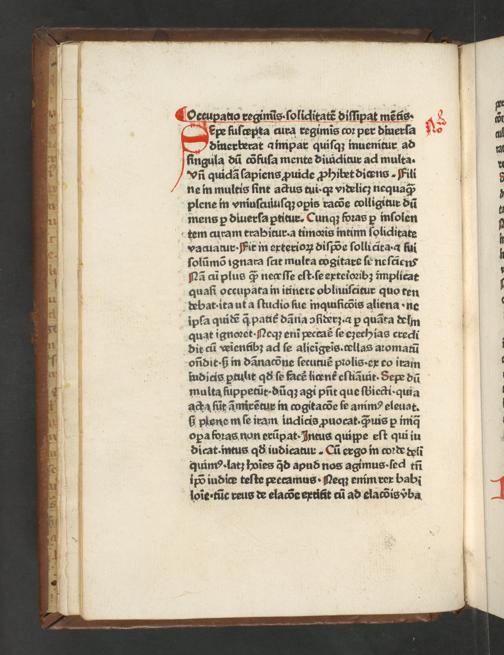 Occupatio regimīs soliditatē dissipat mētis.
Sepe suscepta cura regimis cor per diuersa
diuerberat ⁊ impar quisq; inuenitur ad
singula dū cōfusa mente diuiditur ad multa.
Vñ quidā sapiens ꝓuide ꝓhibet dicens. Fili
ne in multis sint actus tui. qꝛ videlicꝫ nequaq̄
plene in vniuscuiusqꝫ oꝑis racōe colligitur dū
mens ꝑ diuersa ꝑtitur. Cunqꝫ foras ꝑ insolen
tem curam trahitur. a timoris intimi soliditate
vacuatur. Fit in exterioꝝ dispōe sollicita. ⁊ sui
solūmō ignara scit multa cogitare se nesciens
Nā cū plus q̄ necesse est. se exterioribꝫ implicat
quasi occupata in itinere obliuiscitur quo ten
debat. ita ut a studio sue inquisicōis aliena. ne
ipsa quidē q̄ patit̄ dāna ɔsideret. ⁊ ꝑ quāta delin
quat ignoret. Neqꝫ eni peccasse se ezechias credi
dit cū venientibꝫ ad se alienigeis. cellas aromatū
ondit. sꝫ in dānacōne secuture prolis. ex eo iram
iudicis ꝑtulit qd se facere licent̄ estiauit. Sepe dū
multa suppetūt. dūqꝫ agi pn̄t que sbiecti. quia
acta sūt āmirentur in cogitacōe se animꝰ eleuat.
sꝫ plene in se iram iudicis ꝓuocat. q̄uis ꝑ iniq̄
oꝑa foras non erūpat. Intus quippe est qui iu
dicat. intus qd iudicatur. Cū ergo in corde deli
quimꝰ. latꝫ hoīes qd apud nos agimus. sed tn̄
ipō iudice teste peccamus. Neqꝫ enim rex babi
loīe. tūc reus de elacōe extitit cū ad elacōis v̄ba